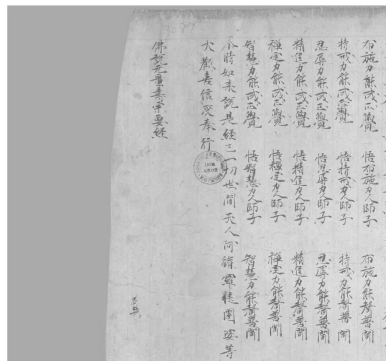 布施力能成正覺 悟布施力人師子 布施力能聲普聞
持戒力能成正覺 悟持戒力人師子 持戒力能聲普聞
忍辱力能成正覺 悟忍辱力人師子 忍辱力能聲普聞
精進力能成正覺 悟精進力人師子 精進力能聲普聞
禪定力能成正覺 悟禪定力人師子 禪定力能聲普聞
智慧力能成正覺 悟智慧力人師子 智慧力能聲普聞
尒時如來說是經已一切世間天人阿脩羅揵闥婆等
大歡喜信受奉行
佛說无量壽宗要經